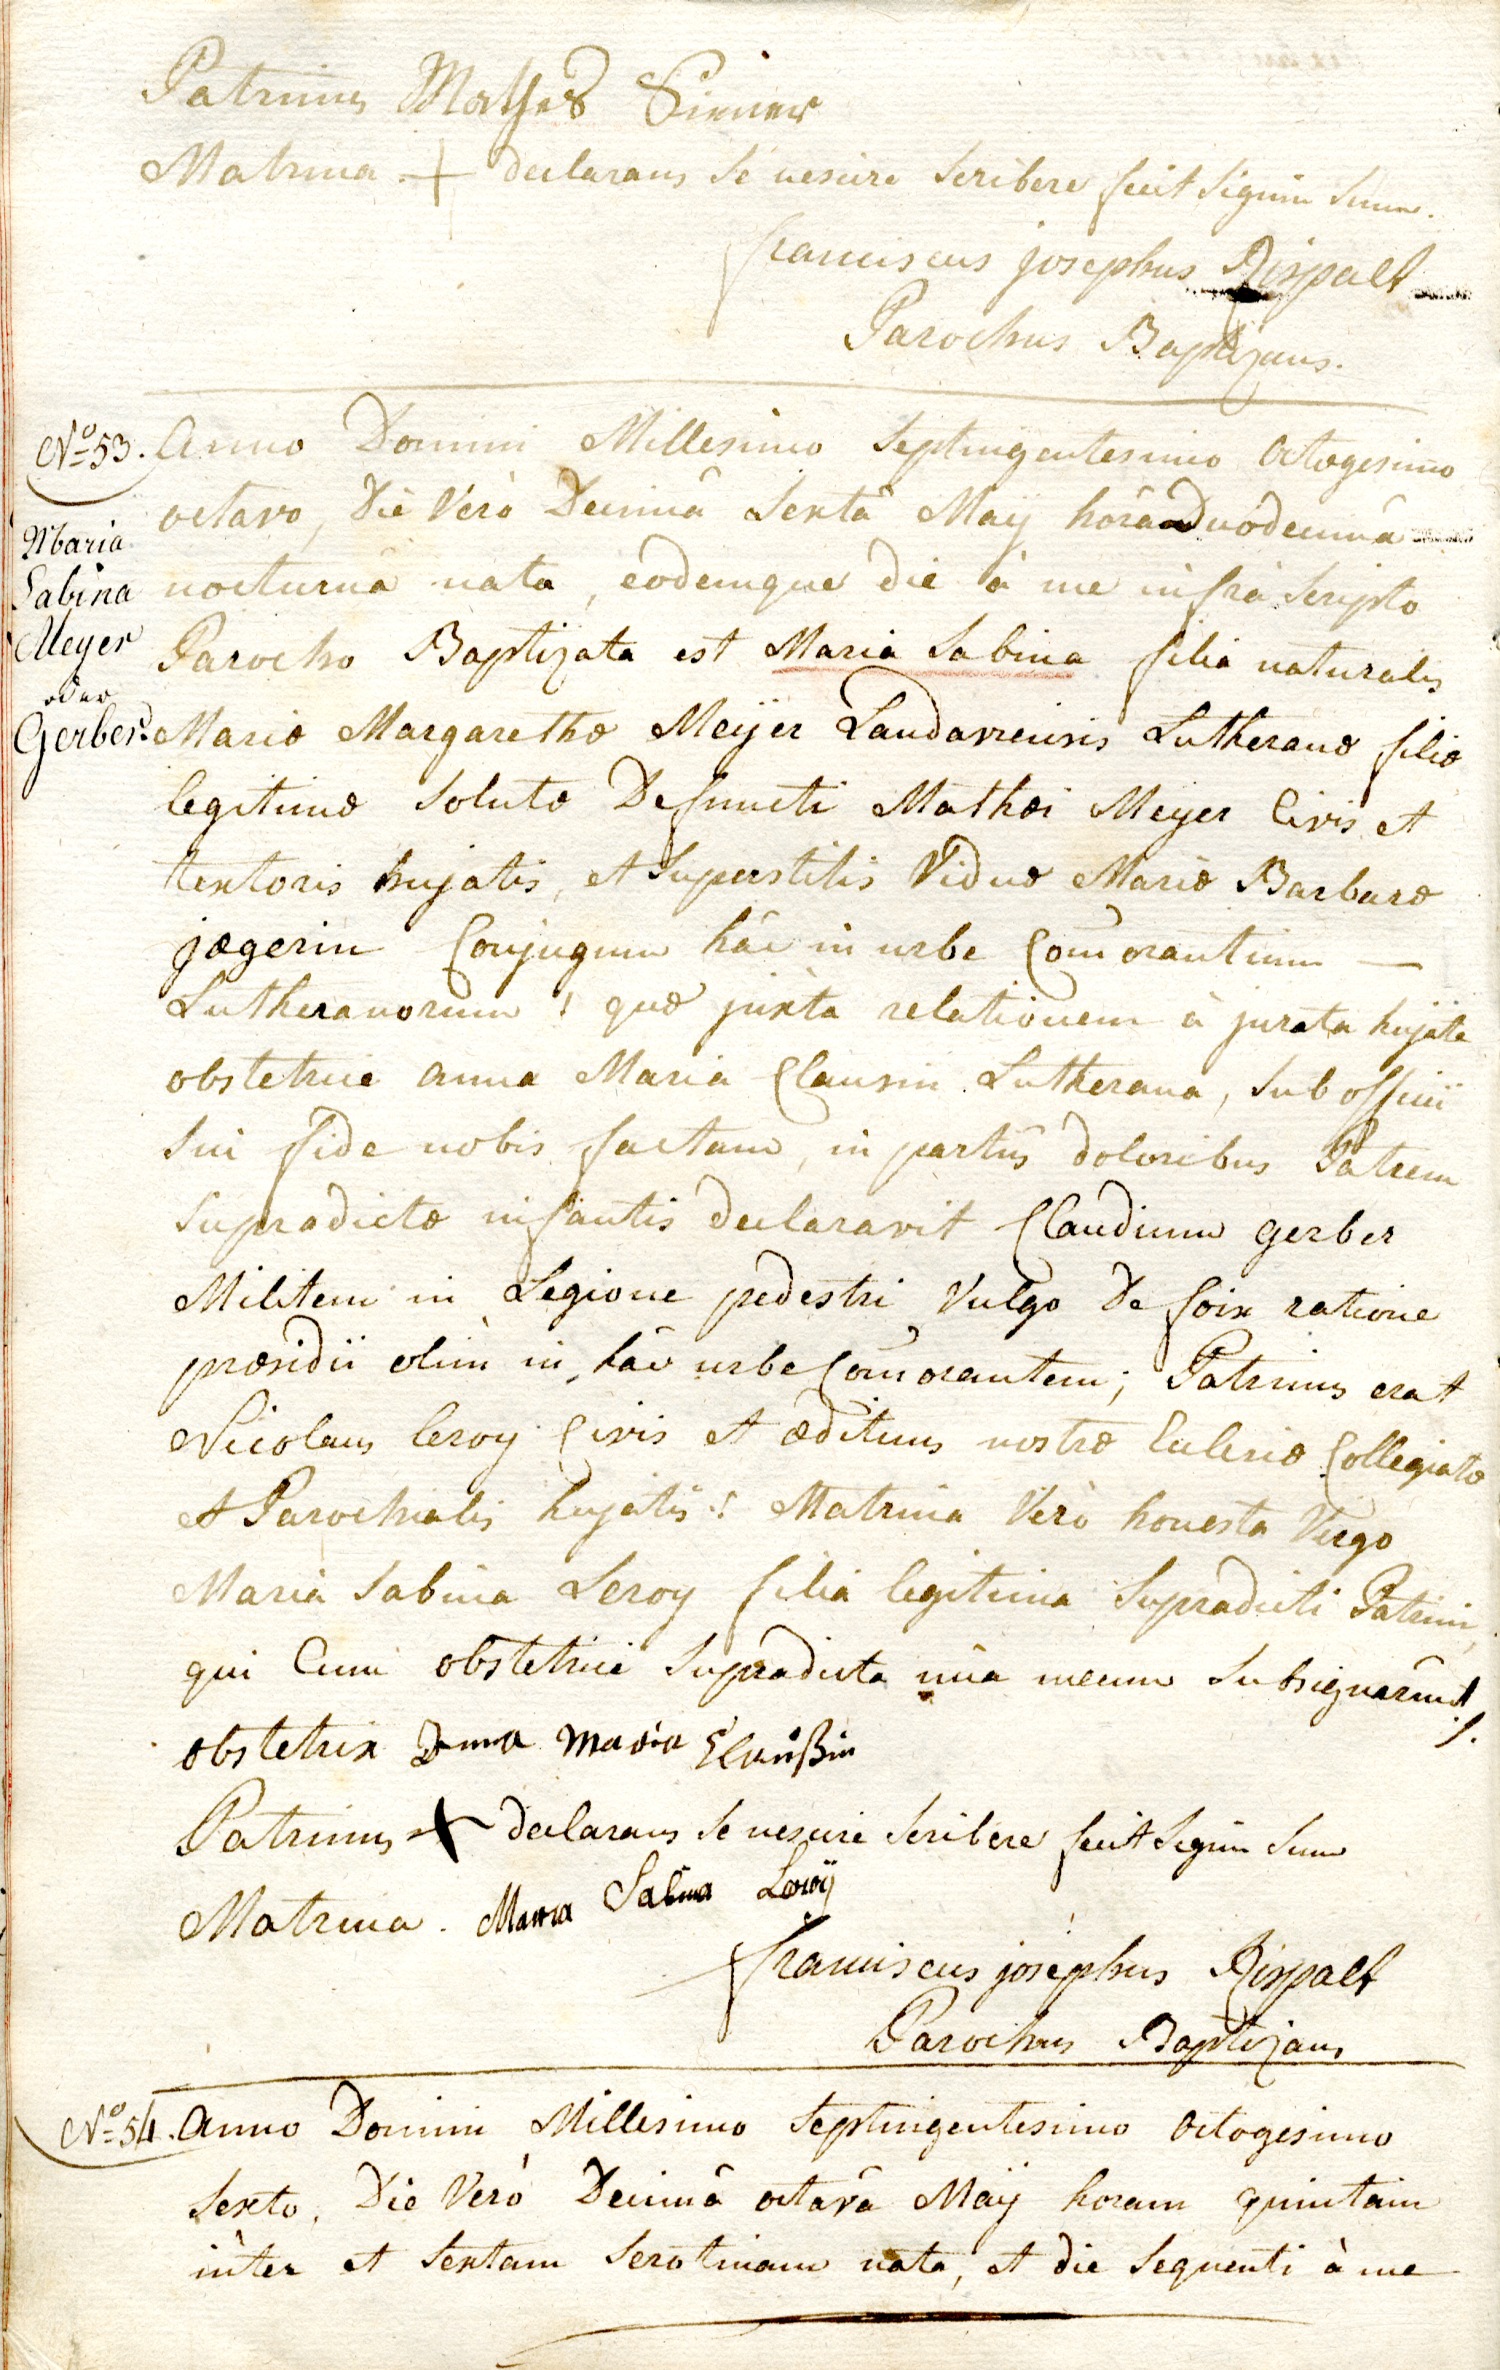 Patrinus Mathes Siener
Matrina + declarans se nescire scribere fecit signum suum.
franciscus josephus Rispalt
Parochus Baptizans.
N.o 53. Anno Domini Millesimo septingentesimo octogesimo
octavo, die verò decimâ sextâ Maÿ horâ duodecimâ
nocturnâ nata, eodemque die à me infrà scripto
Parocho Baptizata est Maria Sabina filia naturalis
Maria
Sabina
Meyer
oder
Gerber.
Mariæ Margarethæ Meÿer Landaviensis Lutheranæ filiæ
legitimæ solutæ Defuncti Mathæi Meÿer Civis et
textoris hujatis, et superstitis Viduæ Mariæ Barbaræ
jægerin Conjugum hâc in urbe Com̄orantium —
Lutheranorum! quæ juxta relationem à jurata hujate
obstetrice anna Maria Clausin Lutherana, sub officii
sui fide nobis factam, in partûs doloribus Patrem
supradictæ infantis declaravit Claudium gerber
Militem in Legione pedestri vulgo de foix ratione
præsidii olim in hâc urbe Com̄orantem; Patrinus erat
Nicolaus leroy Civis et ædituus nostræ Ecclesiæ Collegiatæ
et Parochialis hujatis! Matrina verò honesta Virgo
Maria Sabina Leroy filia legitima supradicti Patrini,
qui Cum obstetrice supradicta unà mecum subsignarûnt.
obstetrix Anna Maria Claußin
Patrinus + declarans se nescire scribere fecit signum suum
Matrina. Maria Sabina Leroÿ
franciscus josephus Rispalt
Parochus Baptizans
N.o 54. Anno Domini Millesimo septingentesimo octogesimo
sexto, Die verò Decimâ octavâ Maÿ horam quintam
inter et sextam serotinam nata, et die sequenti à me